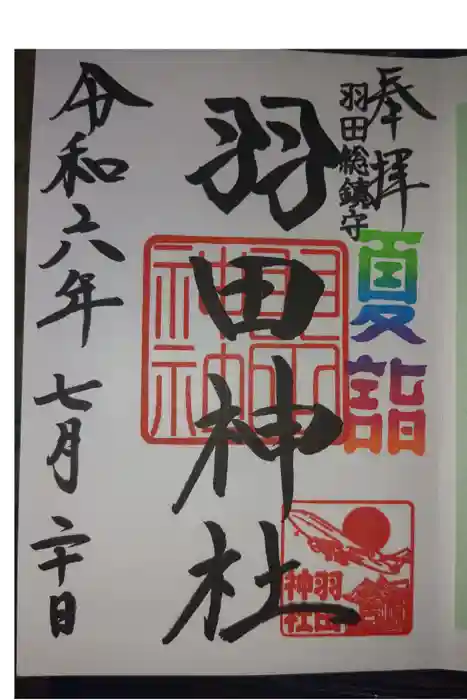 奉拝
羽田総鎮守
夏詣
羽田神社
羽田神社
羽田神社
令和六年七月二十日